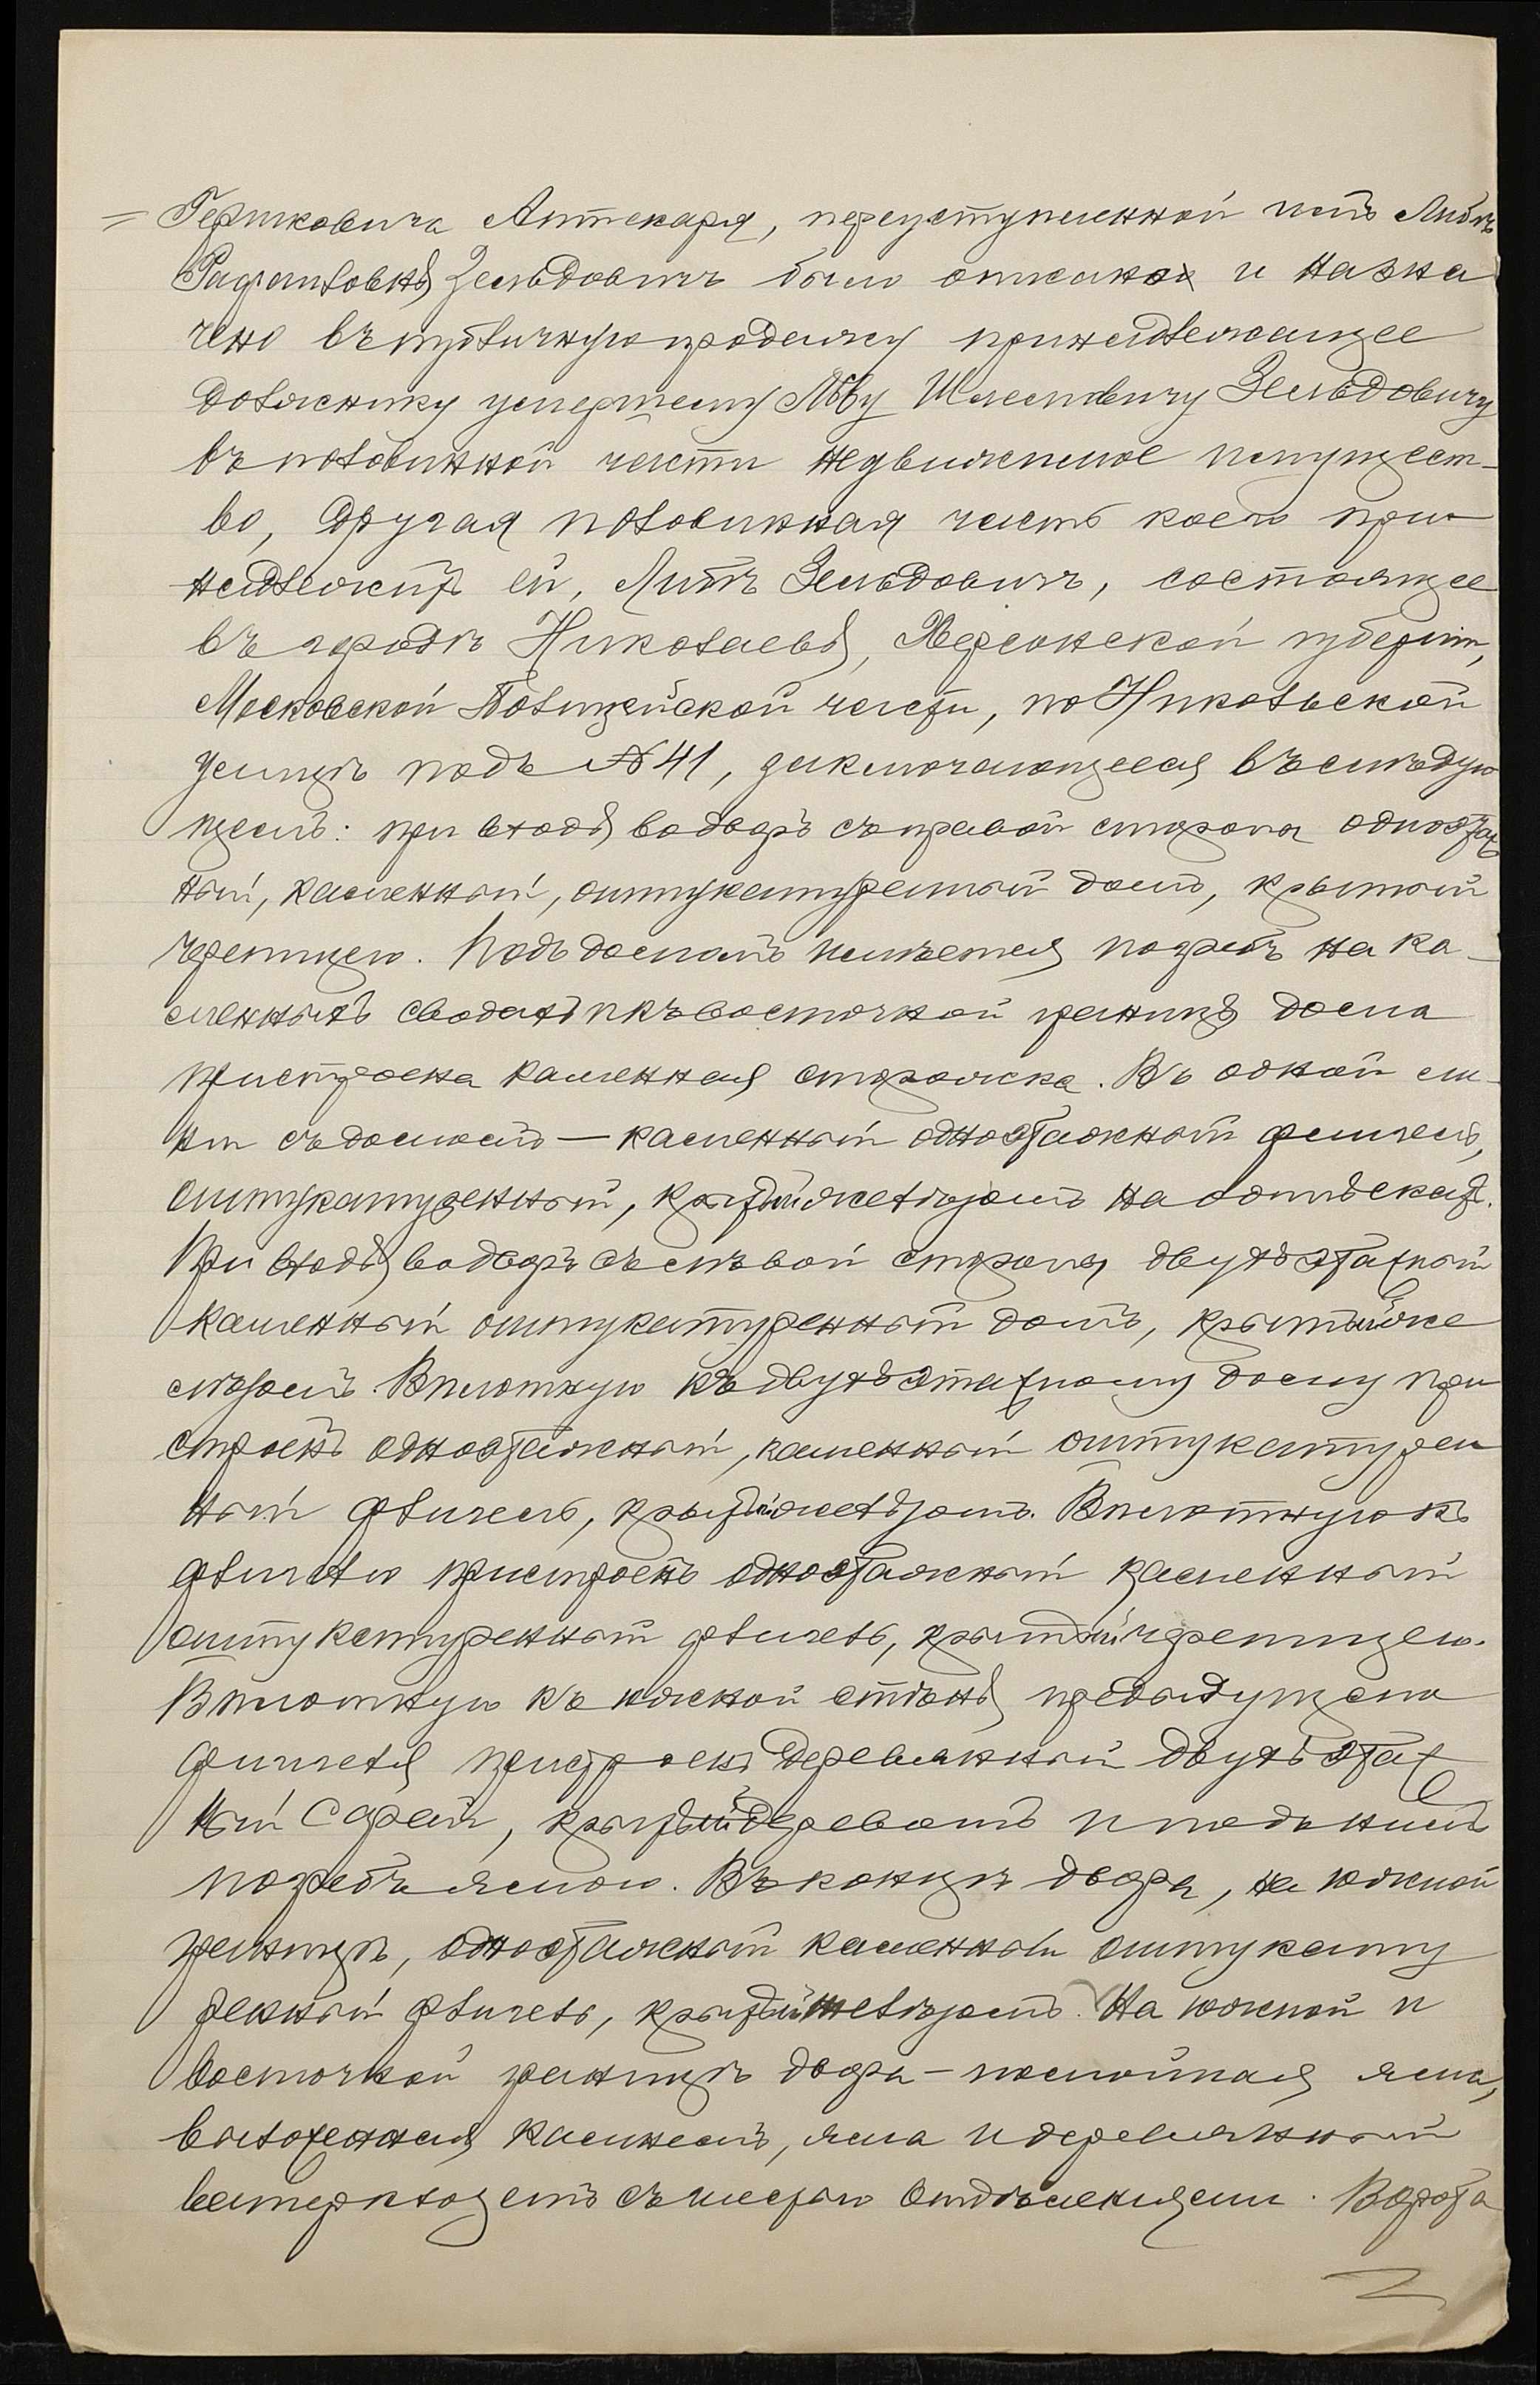 = Гершковича Аптекаря, переуступленной имъ Либѣ
Рафаиловнѣ Зельдовичъ было описано и назна
чено въ публичную продажу принадлежащее
должнику умершему Льву Шлемовичу Зельдовичу
въ половинной части недвижимое имущест-
во, другая половинная часть коего при
надлежитъ ей, Либѣ Зельдовичъ, состоящее
въ городѣ Николаевѣ, Херсонской губерніи,
Московской Полицейской части, по Никольской
улицѣ подъ № 41, заключающееся въ слѣдую
щемъ: при входѣ во дворъ съ правой стороны одноэтаж
ный, каменный, оштукатуренный домъ, крытый
черепицею. Подъ домомъ имѣется погребъ на ка-
менныхъ сводахъ и къ восточной границѣ дома
пристроена каменная сторожка. Въ одной ли-
ніи съ домомъ — каменный одноэтажный флигель,
оштукатуренный, крытый желѣзомъ на
При входѣ во дворъ съ лѣвой стороны двухъэтажный
каменный оштукатуренный домъ, крытый же
лѣзомъ. Вплотную къ двухъэтажному дому при
строенъ одноэтажный, каменный оштукатурен
ный флигель, крытый желѣзомъ. Вплотную къ
флигелю пристроенъ одноэтажный каменный
оштукатуренный флигель, крытый черепицею.
Вплотную къ южной стѣнѣ предыдущаго
флигеля пристроенъ деревянный двухъэтаж
ный сарай, крытый деревомъ и подъ нимъ
погребъ ямою. Въ концѣ двора, на южной
границѣ, одноэтажный каменный оштукату
ренный флигель, крытый желѣзомъ. На южной и
восточной границѣ двора — помойная яма,
выложенная камнемъ, яма и деревянный
ватерклозетъ съ шестью отдѣленіями. Ворота